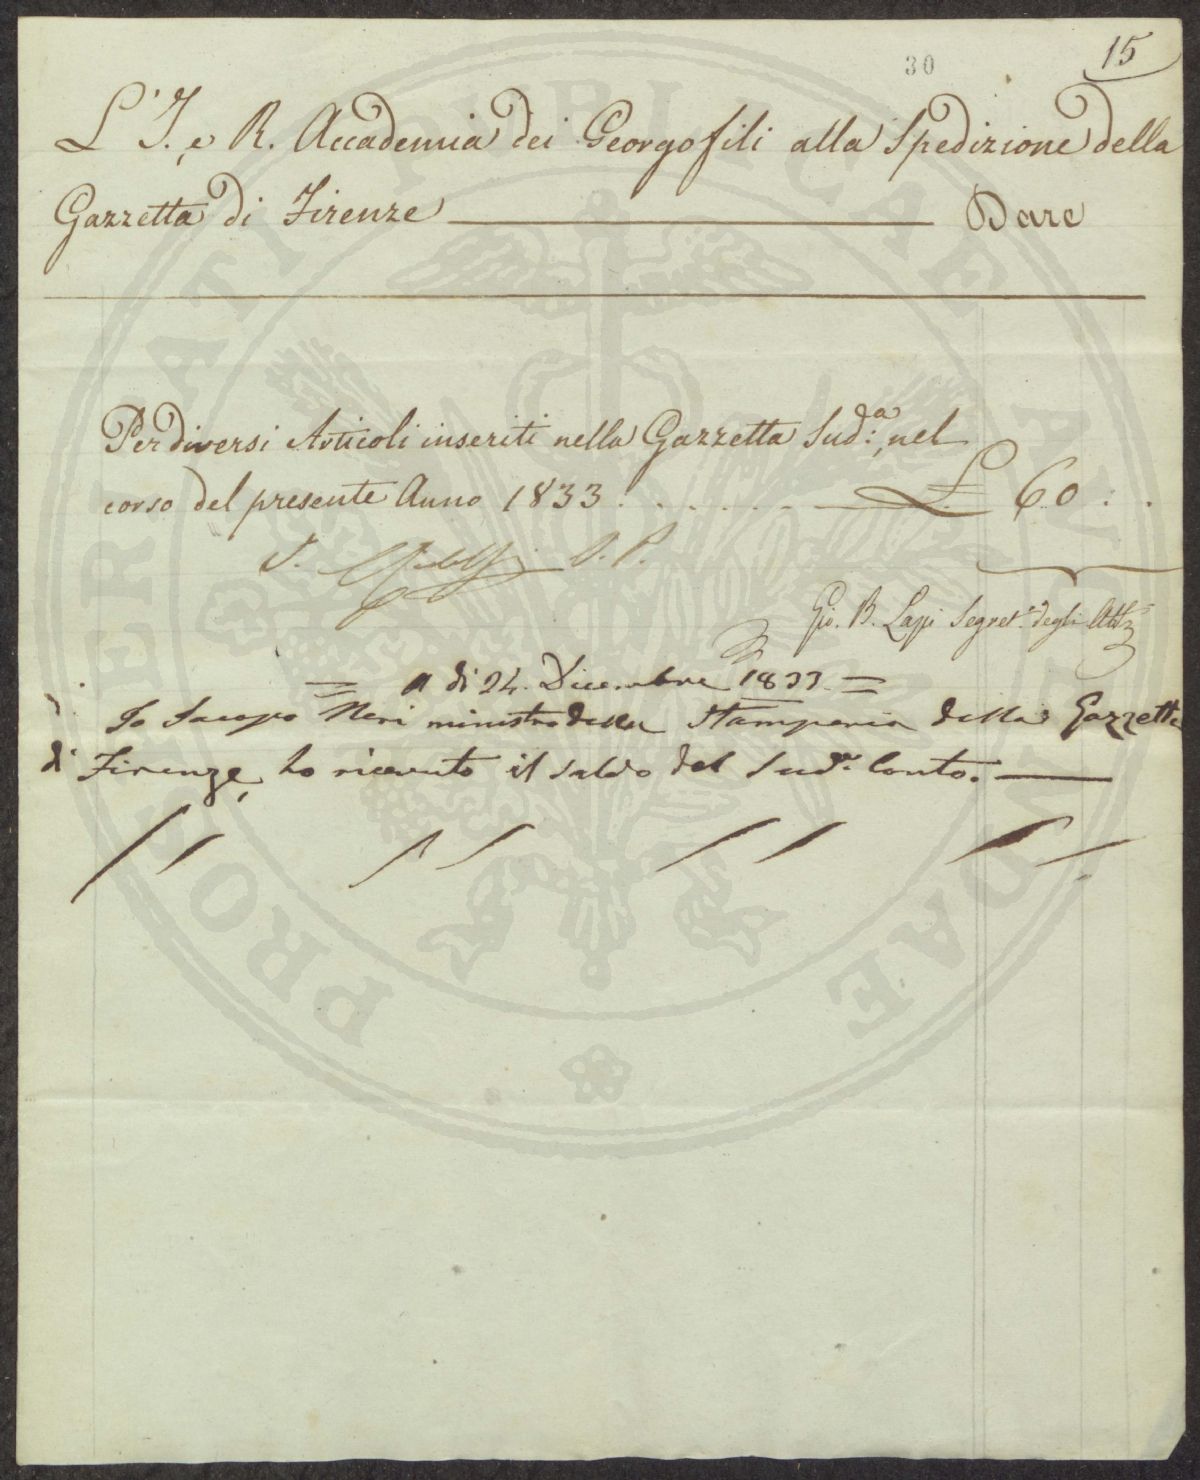 30
15
L'I. e R. Accademia dei Georgofili alla Spedizione della
Gazzetta di Firenze Dare
Per diversi Articoli inseriti nella Gazzetta Sud.a, nel
corso del presente Anno 1833 . . . . . . £ 60 : .
V. O. P.
Gio. B. Lapi Segret.o degli Atti
= A di 24. Dicembre 1833. =
Io Jacopo Neri ministro della Stamperia della Gazzetta
di Firenze, ho ricevuto il saldo del Sud.o Conto.
PROSPERITATI PUBLICAE AUGENDAE